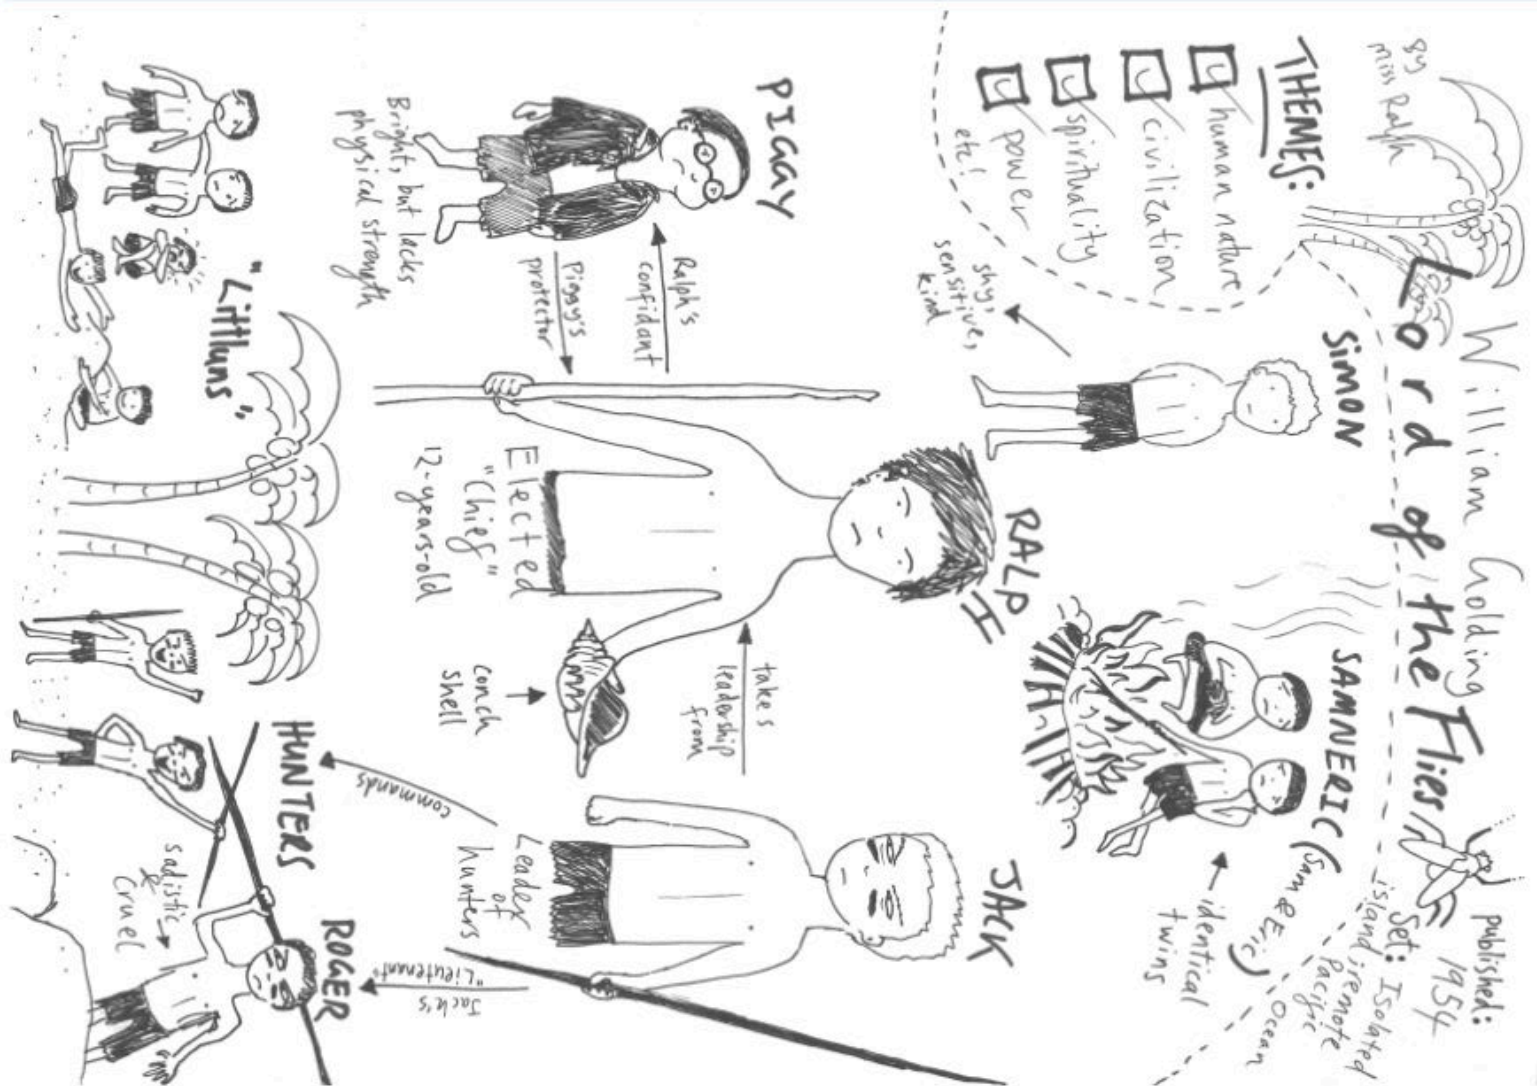 By
Miss Ralph
William Golding
Lord of the Flies
published:
1954
Set: Isolated
island, remote
Pacific
Ocean
THEMES:
human nature
civilization
spirituality
power
etc!
SIMON
shy,
sensitive,
kind
SAMNERIC (Sam & Eric)
identical
twins
PIGGY
Bright, but lacks
physical strength
Ralph's
confidant
Piggy's
protector
RALPH
Elected
"Chief"
12-years-old
conch
shell
takes
leadership
from
JACK
Leader
of
hunters
commands
Jack's
"Lieutenant"
"Littluns"
HUNTERS
ROGER
sadistic
&
cruel